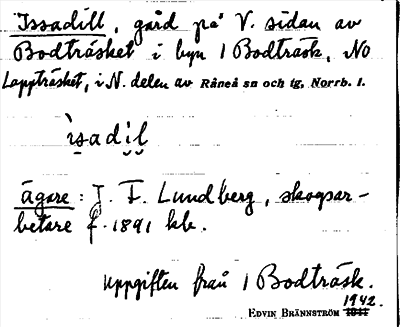 "Issadill, gård på V. sidan av
Bodträsket i byn 1 Bodträsk, NO
Lappträsket, i N. delen av Råneå sn och tg, Norrb. l.
ìsadìl
ägare: J. F. Lundberg, skogsar-
betare f. 1891 klr.
Uppgiften från 1 Bodträsk.
1942.
EDVIN BRÄNNSTRÖM 1941